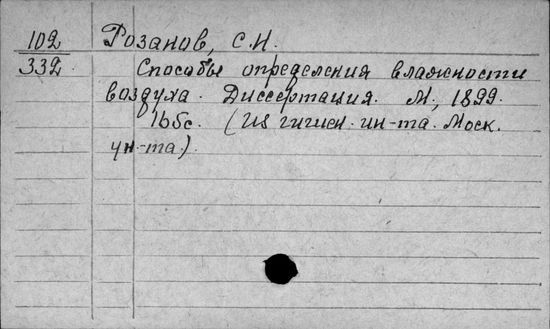 102 Розанов, С.Н.
332 Способы определения влажности
воздуха. Диссертация. М., 1899.
165с. (Из гигиен. ин-та. Моск.
ун-та.)